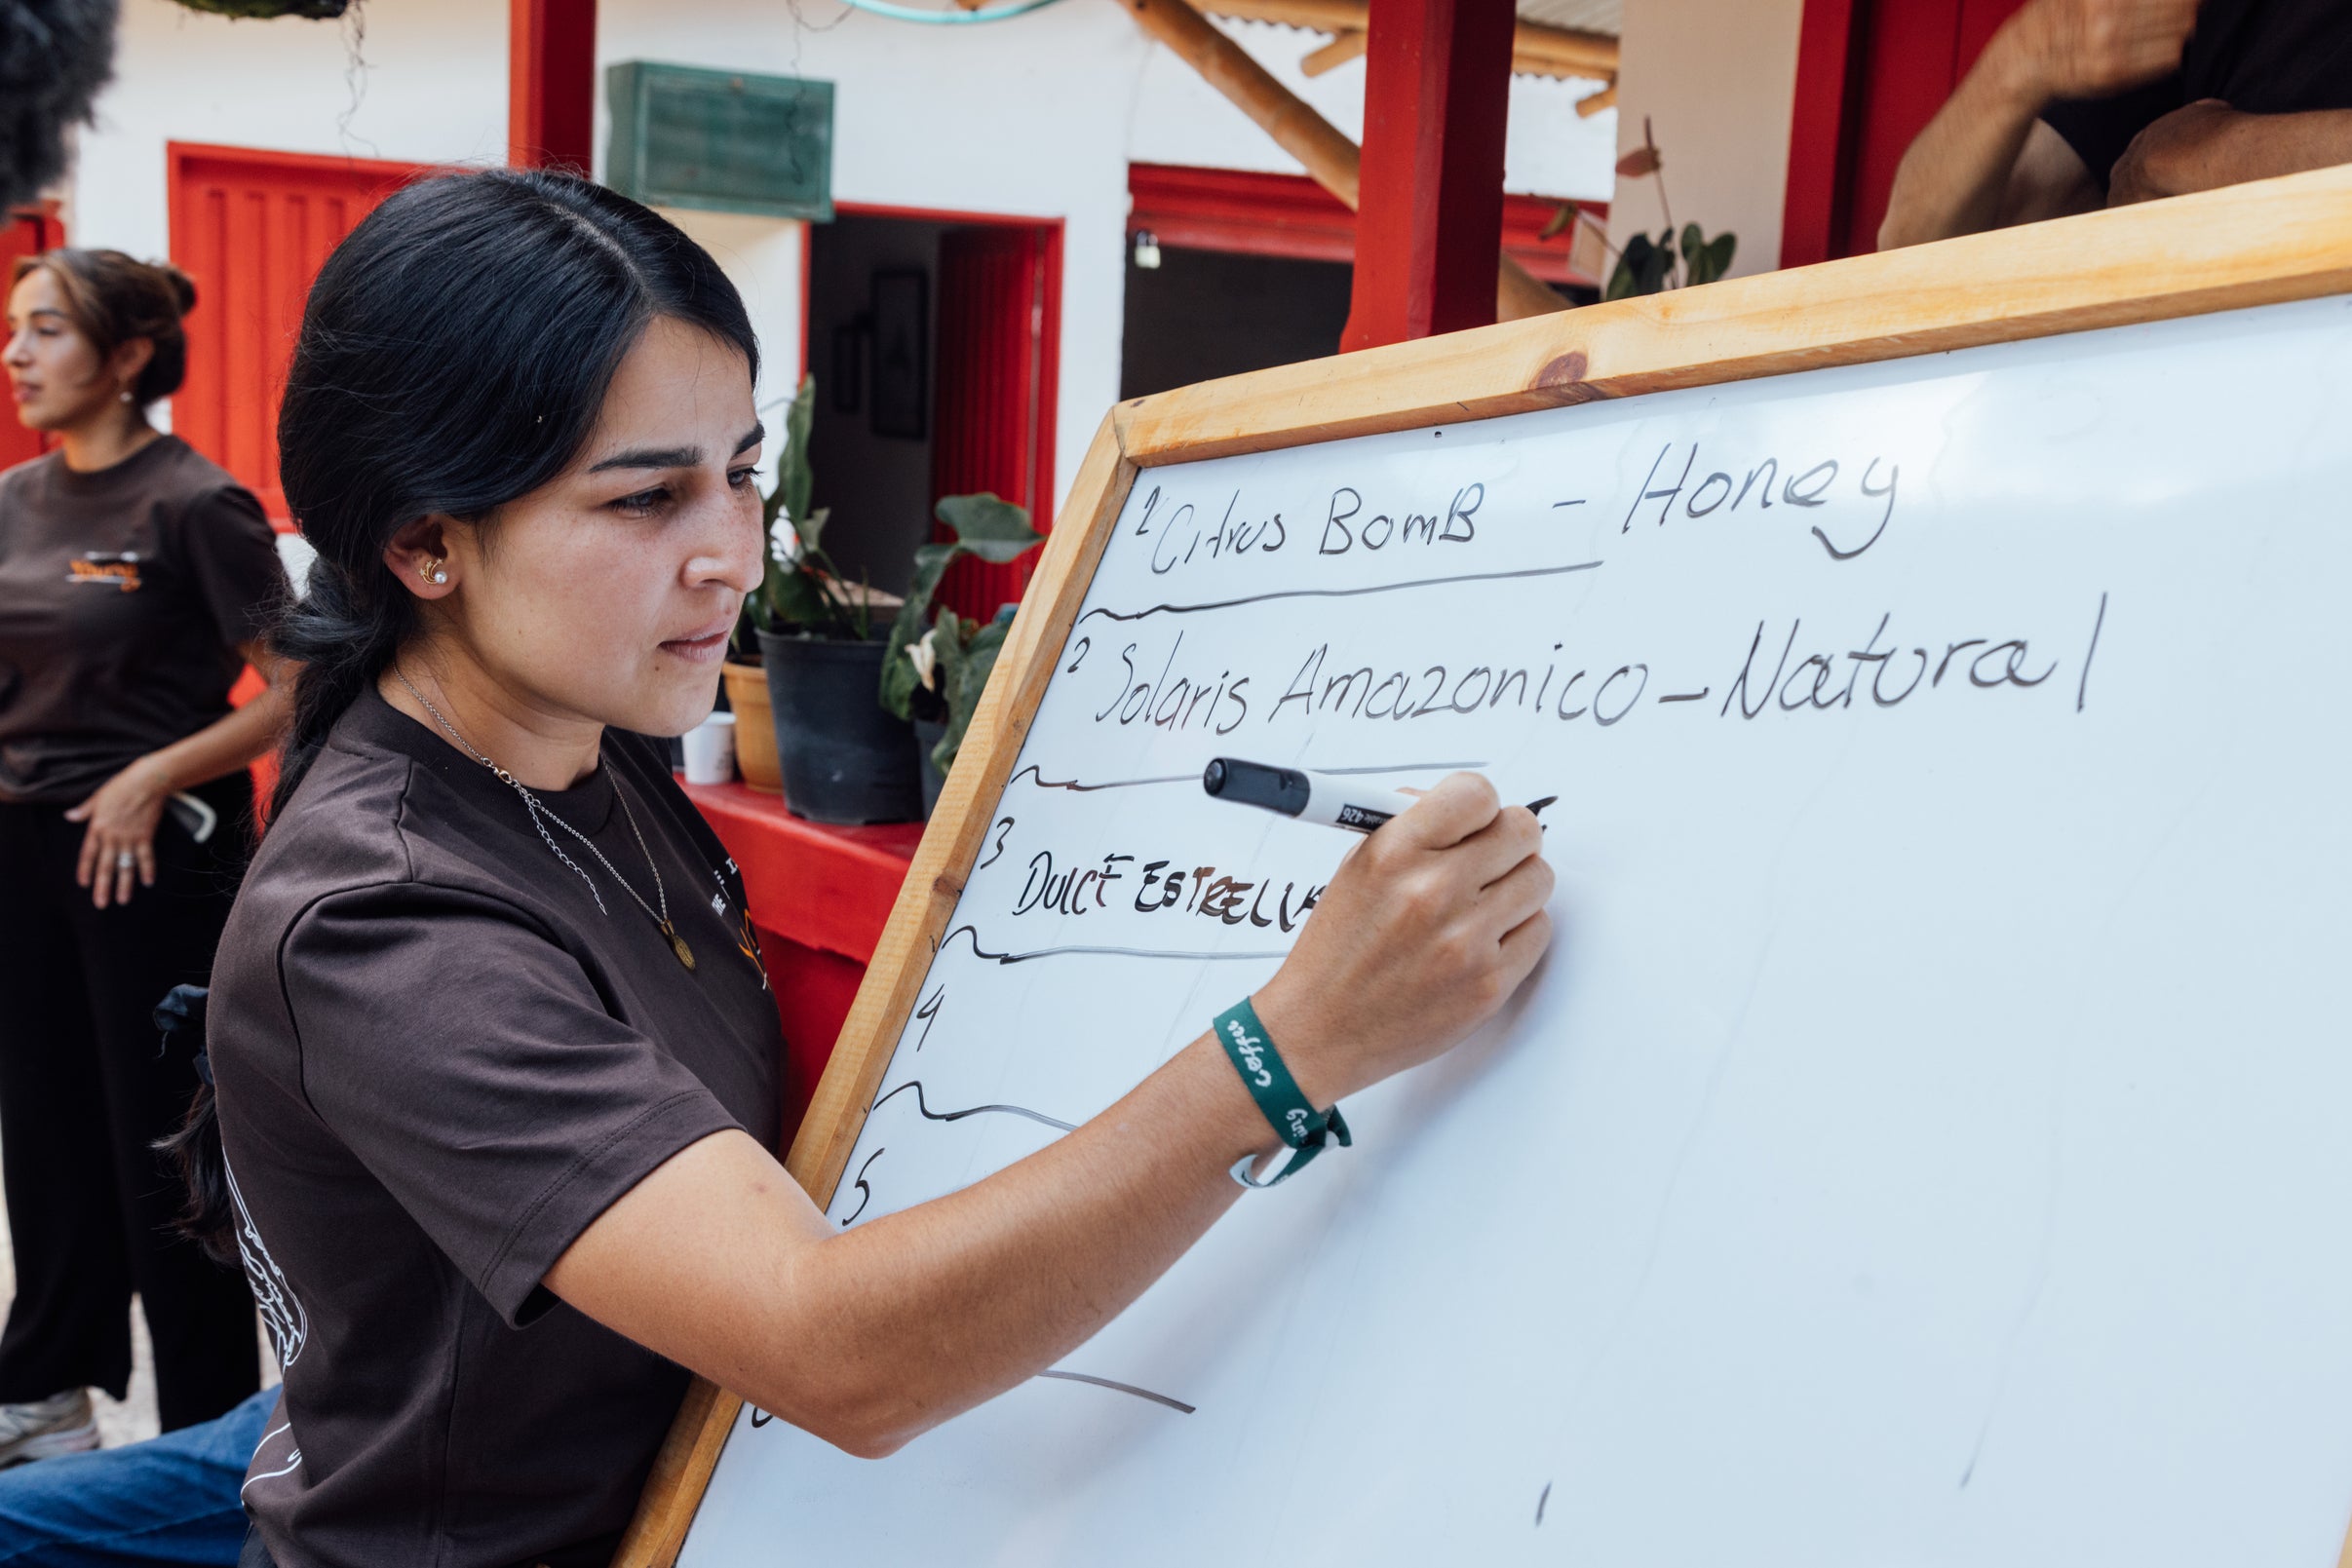 1 Citrus BomB - Honey
2 Solaris Amazonico - Natural
3 DULCE ESTRELLA
4
5
426
coffee